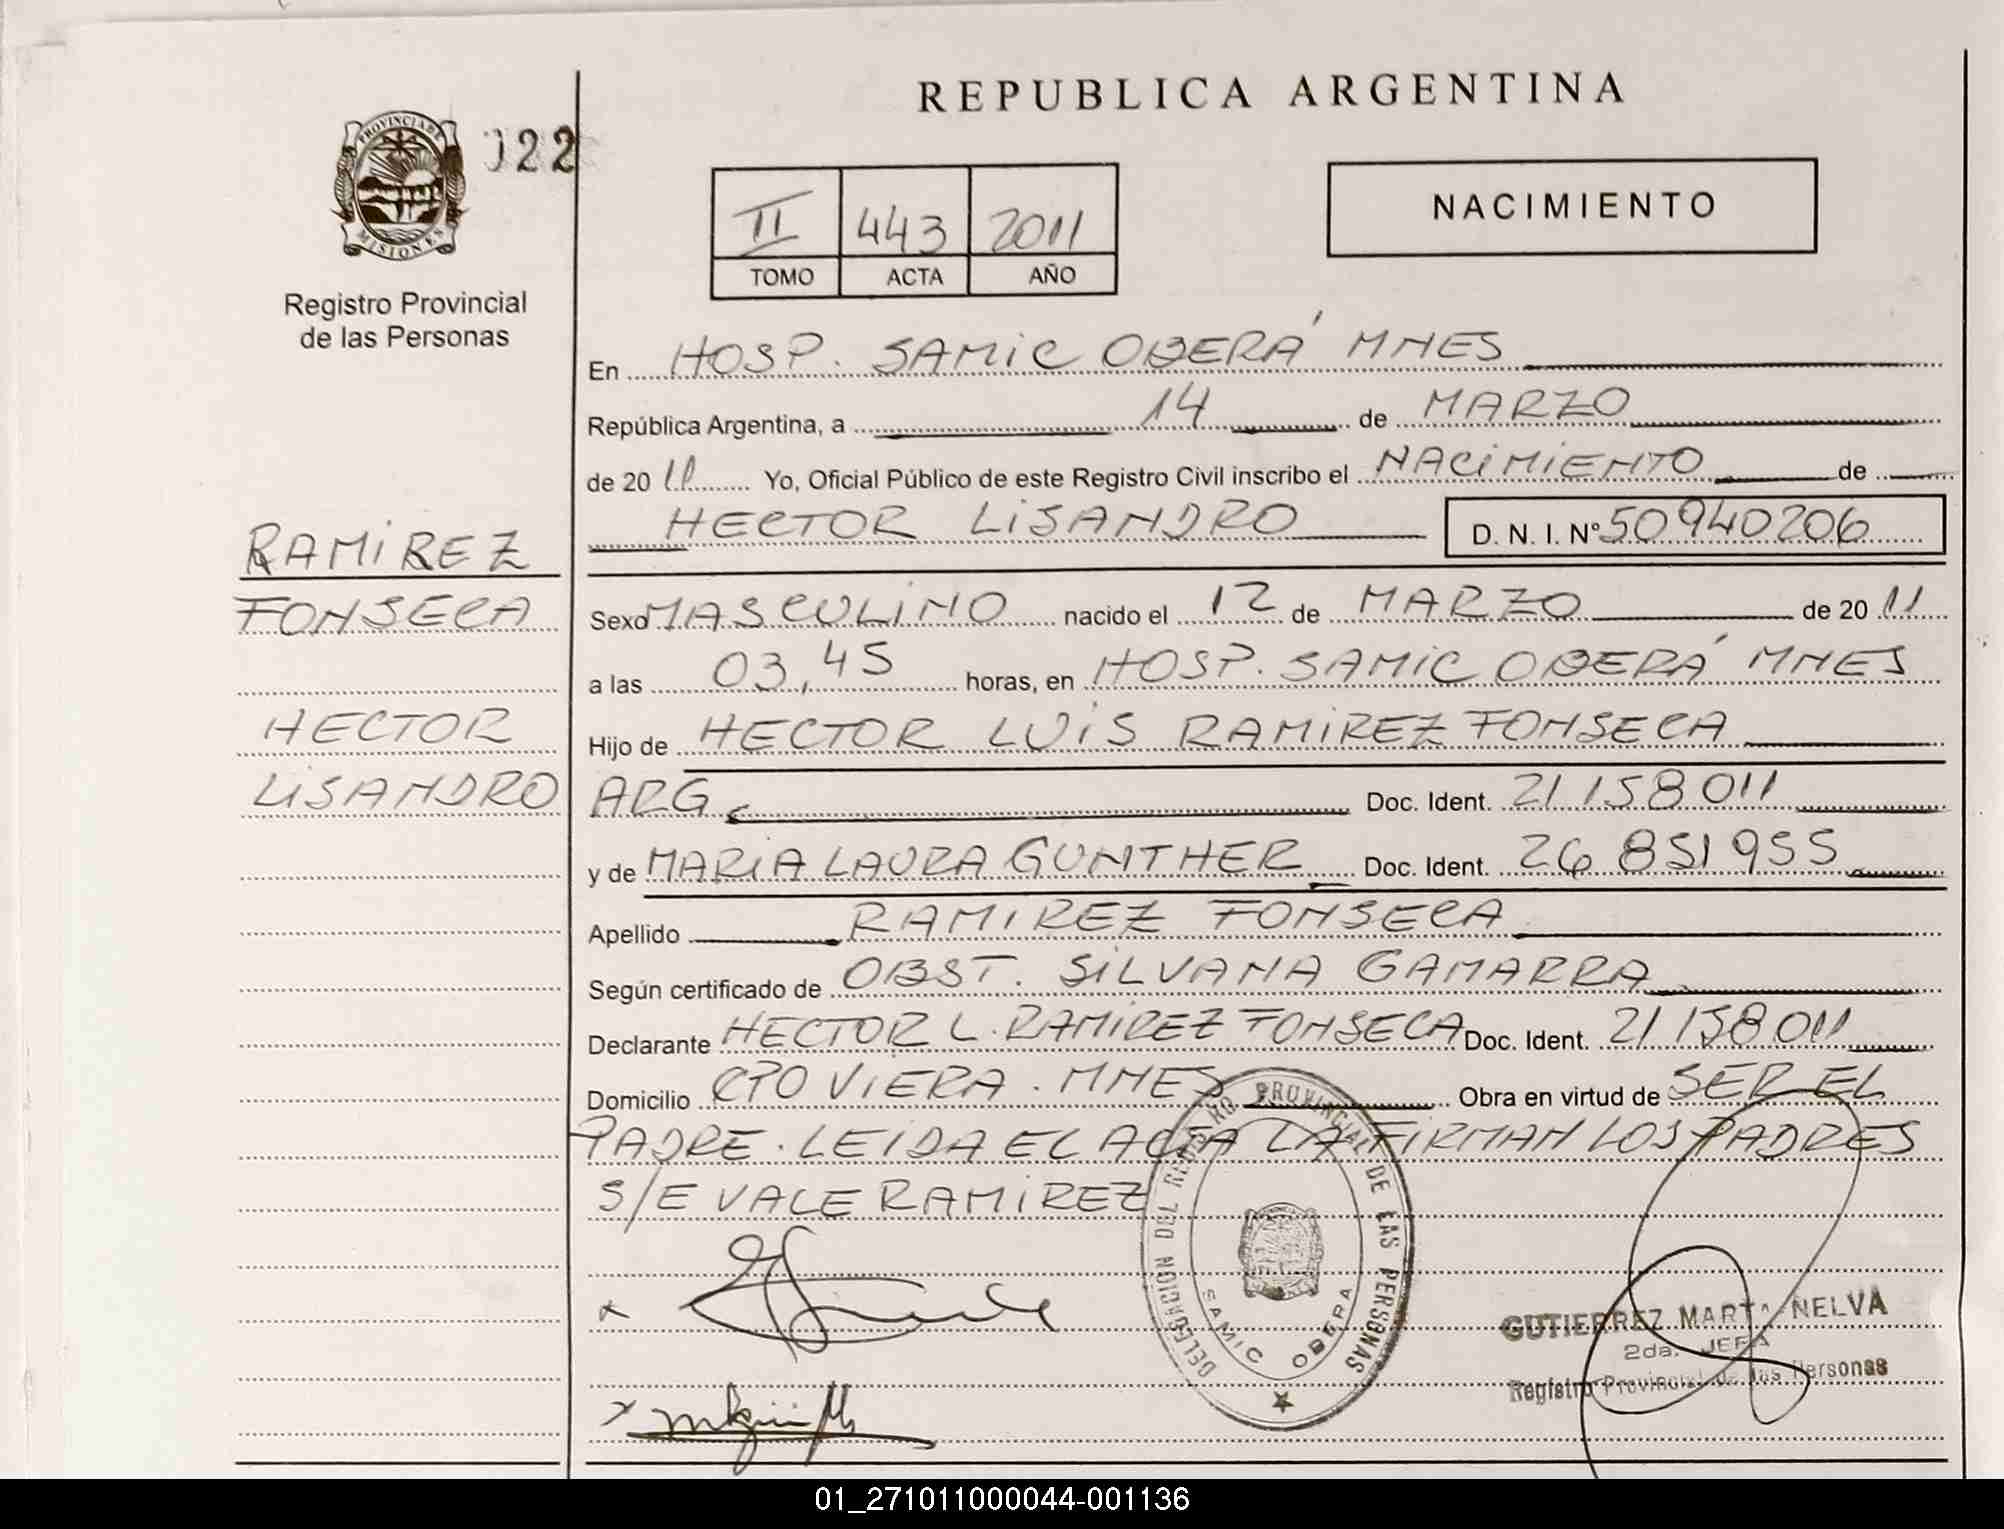 REPUBLICA ARGENTINA
PROVINCIA DE
MISIONES
022
Registro Provincial
de las Personas
II 443 2011
TOMO ACTA AÑO
NACIMIENTO
En HOSP. SAMIC OBERÁ MNES
República Argentina, a 14 de MARZO
de 20 11 Yo, Oficial Público de este Registro Civil inscribo el NACIMIENTO de
HECTOR LISANDRO D. N. I. Nº 50940206
RAMIREZ
FONSECA
HECTOR
LISANDRO
Sexo MASCULINO nacido el 12 de MARZO de 20 11
a las 03,45 horas, en HOSP. SAMIC OBERÁ MNES
Hijo de HECTOR LUIS RAMIREZ FONSECA
ARG Doc. Ident. 21 158 011
y de MARIA LAURA GUNTHER Doc. Ident. 26 851 955
Apellido RAMIREZ FONSECA
Según certificado de OBST. SILVANA GAMARRA
Declarante HECTOR L. RAMIREZ FONSECA Doc. Ident. 21 158 011
Domicilio CPO VIERA. MNES Obra en virtud de SER EL
PADRE. LEIDA EL ACTA LA FIRMAN LOS PADRES
S/E VALE RAMIREZ
DELEGACION DEL REGISTRO PROVINCIAL DE LAS PERSONAS
SAMIC OBERA
GUTIERREZ MARTA NELVA
2da. JEFA
Registro Provincial de las Personas
01_271011000044-001136